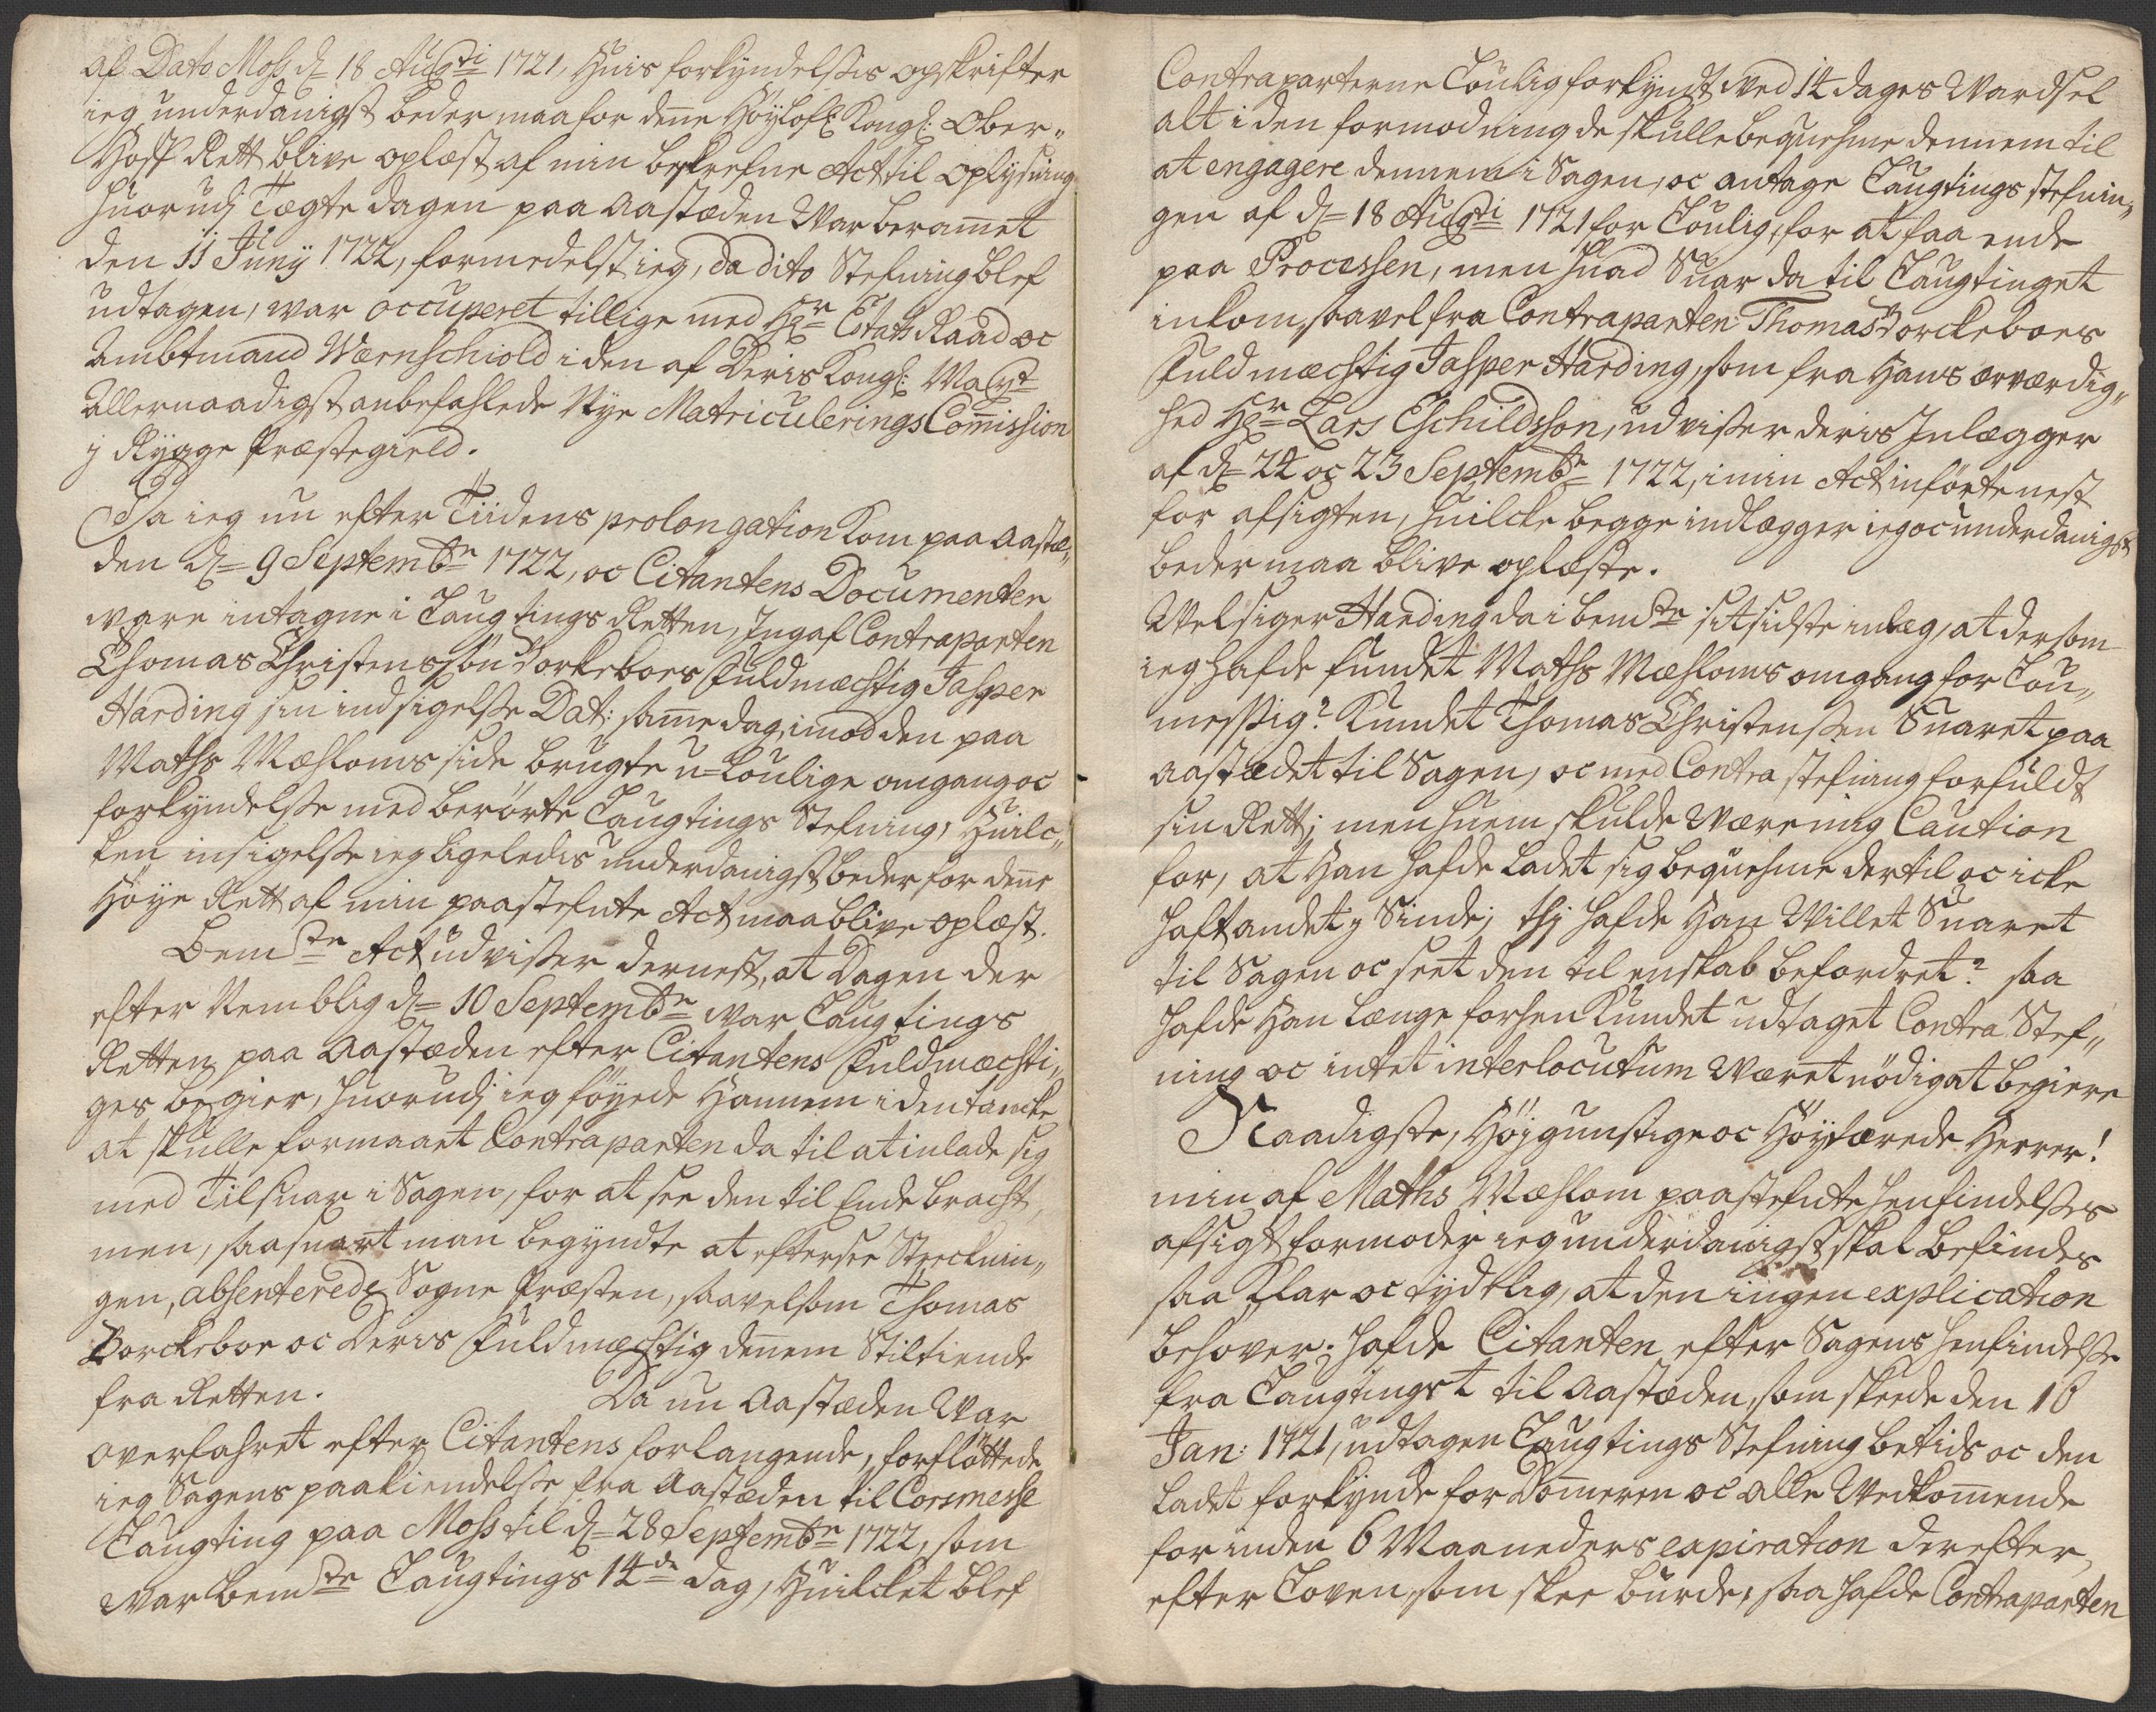 af Dato Moss d= 18 Augsti 1721, Huis forkyndelssis opskrifter
ieg underdanigst beder maa for denne Höylofl: Kongl: Ober„
Hoff Rett blive oplæst af min beskrefne Act til oplysning
huorudj Tægte dagen paa Aastæden War beramet
den 11 Juny 1722, formedelst ieg, da dito Stefning blef
udtagen, war occuperet tillige med Hr= Etats Raad oc
Ambtmand Wærnschiold i den af Deris Kongl: Mayt=
Allernaadigst anbefahlede Nye Matriculerings Comission
j Rygge Præstegield.
Da ieg nu efter Tiidens prolongation kom paa Aastæ„
den d= 9 Septembr= 1722, oc Citantens Documenter
vare intagne i Laugtings Retten, Ingaf Contraparten
Thomas Christenssøn Dorkeboes Fuldmæchtig Jasper
Harding sin indsigelsse Dat: same dag, imod den paa
Maths Mæhloms side brugte u=loulige omgang oc
forkyndelsse med berörte Laugtings Stefning, Huilc„
ken insigelsse ieg ligeledis underdanigst beder for denne
Höye Rett af min paastefnte Act maa blive oplæst.
Bemte Act udvisser dernest, at Dagen der
efter Nemblig d= 10 Septembr= war Laugtings
Retten paa Aastæden efter Citantens Fuldmæchti„
ges begier, huorudj ieg föyede Hannem i den tancke
at skulle formaaet Contraparten da til at inlade sig
med Tilsuar i Sagen, for at see den til Ende bracht,
men, saasnart man begyndte at eftersee Strecknin„
gen, absenterede Sogne Præsten, saavelsom Thomas
Dorckeboe oc Deris Fuldmæchtig dennem Stiltiende
fra Retten. Da nu Aastæden War
overfahret efter Citantens forlangende, forflöttede
ieg Sagens paakiendelsse fra Aastæden til Corsmesse
Laugting paa Moss til d= 28 Septembr= 1722, som
war bemte Laugtings 14de dag, Huilcket blef
Contraparterne Loulig forkyndt Med 14 dages Wardsel
alt i den formodning de skulle bequehme dennem til
at engagere dennem i Sagen, oc antage Laugtings stefnin„
gen af d= 18 Augsti 1721 for Loulig, for at faa ende
paa Processen, men huad Suar da til Laugtinget
inkom, saavel fra Contraparten Thomas Dorckeboes
Fuldmæchtig Jasper Harding, som fra Hans ærværdig„
hed Hr= Lars Eschildsson, udvisser deris Inlægger
af d= 22 oc 23 Septembr= 1722, i min Act införte nest
for afsigten, huilcke begge indlægger ieg oc underdanigst
beder maa blive oplæste.
Wel siger Harding da i bemte sit sidste inlæg, at dersom
ieg hafde fundet Maths Mæhloms omgang for Lou„
messig? Kundet Thomas Christenssen Suaret paa
Aastædet til Sagen, oc med Contra stefning forfuldt
sin Rett; men huem skulde Være mig Caution
for, at Han hafde ladet sig bequehme dertil oc icke
haft andet j Sinde; thj hafde Han Willet Suaret
til Sagen oc seet den til enskab befordret? saa
hafde Han længe forhen Kundet udtaget Contra Stef„
ning oc intet interlocutum Været nödig at begiere
Naadigste, Höjgunstige oc Höylærede Herrer!
min af Maths Mæhlom paastefnte henfindelsses
afsigt formoder ieg underdanigst skal befindes
saa Klar oc tydelig, at den ingen explication
behøver; hafde Citanten efter Sagens henfindelsse
fra Laugtinget til Aastæden, som skeede den 16
Jan: 1721, udtagen Laugtings Stefning betids oc den
ladet forkynde for Domeren oc alle Vedkomende
for inden 6 Maaneders expiration derefter
efter Loven, som skee burde, saa hafde Contraparten